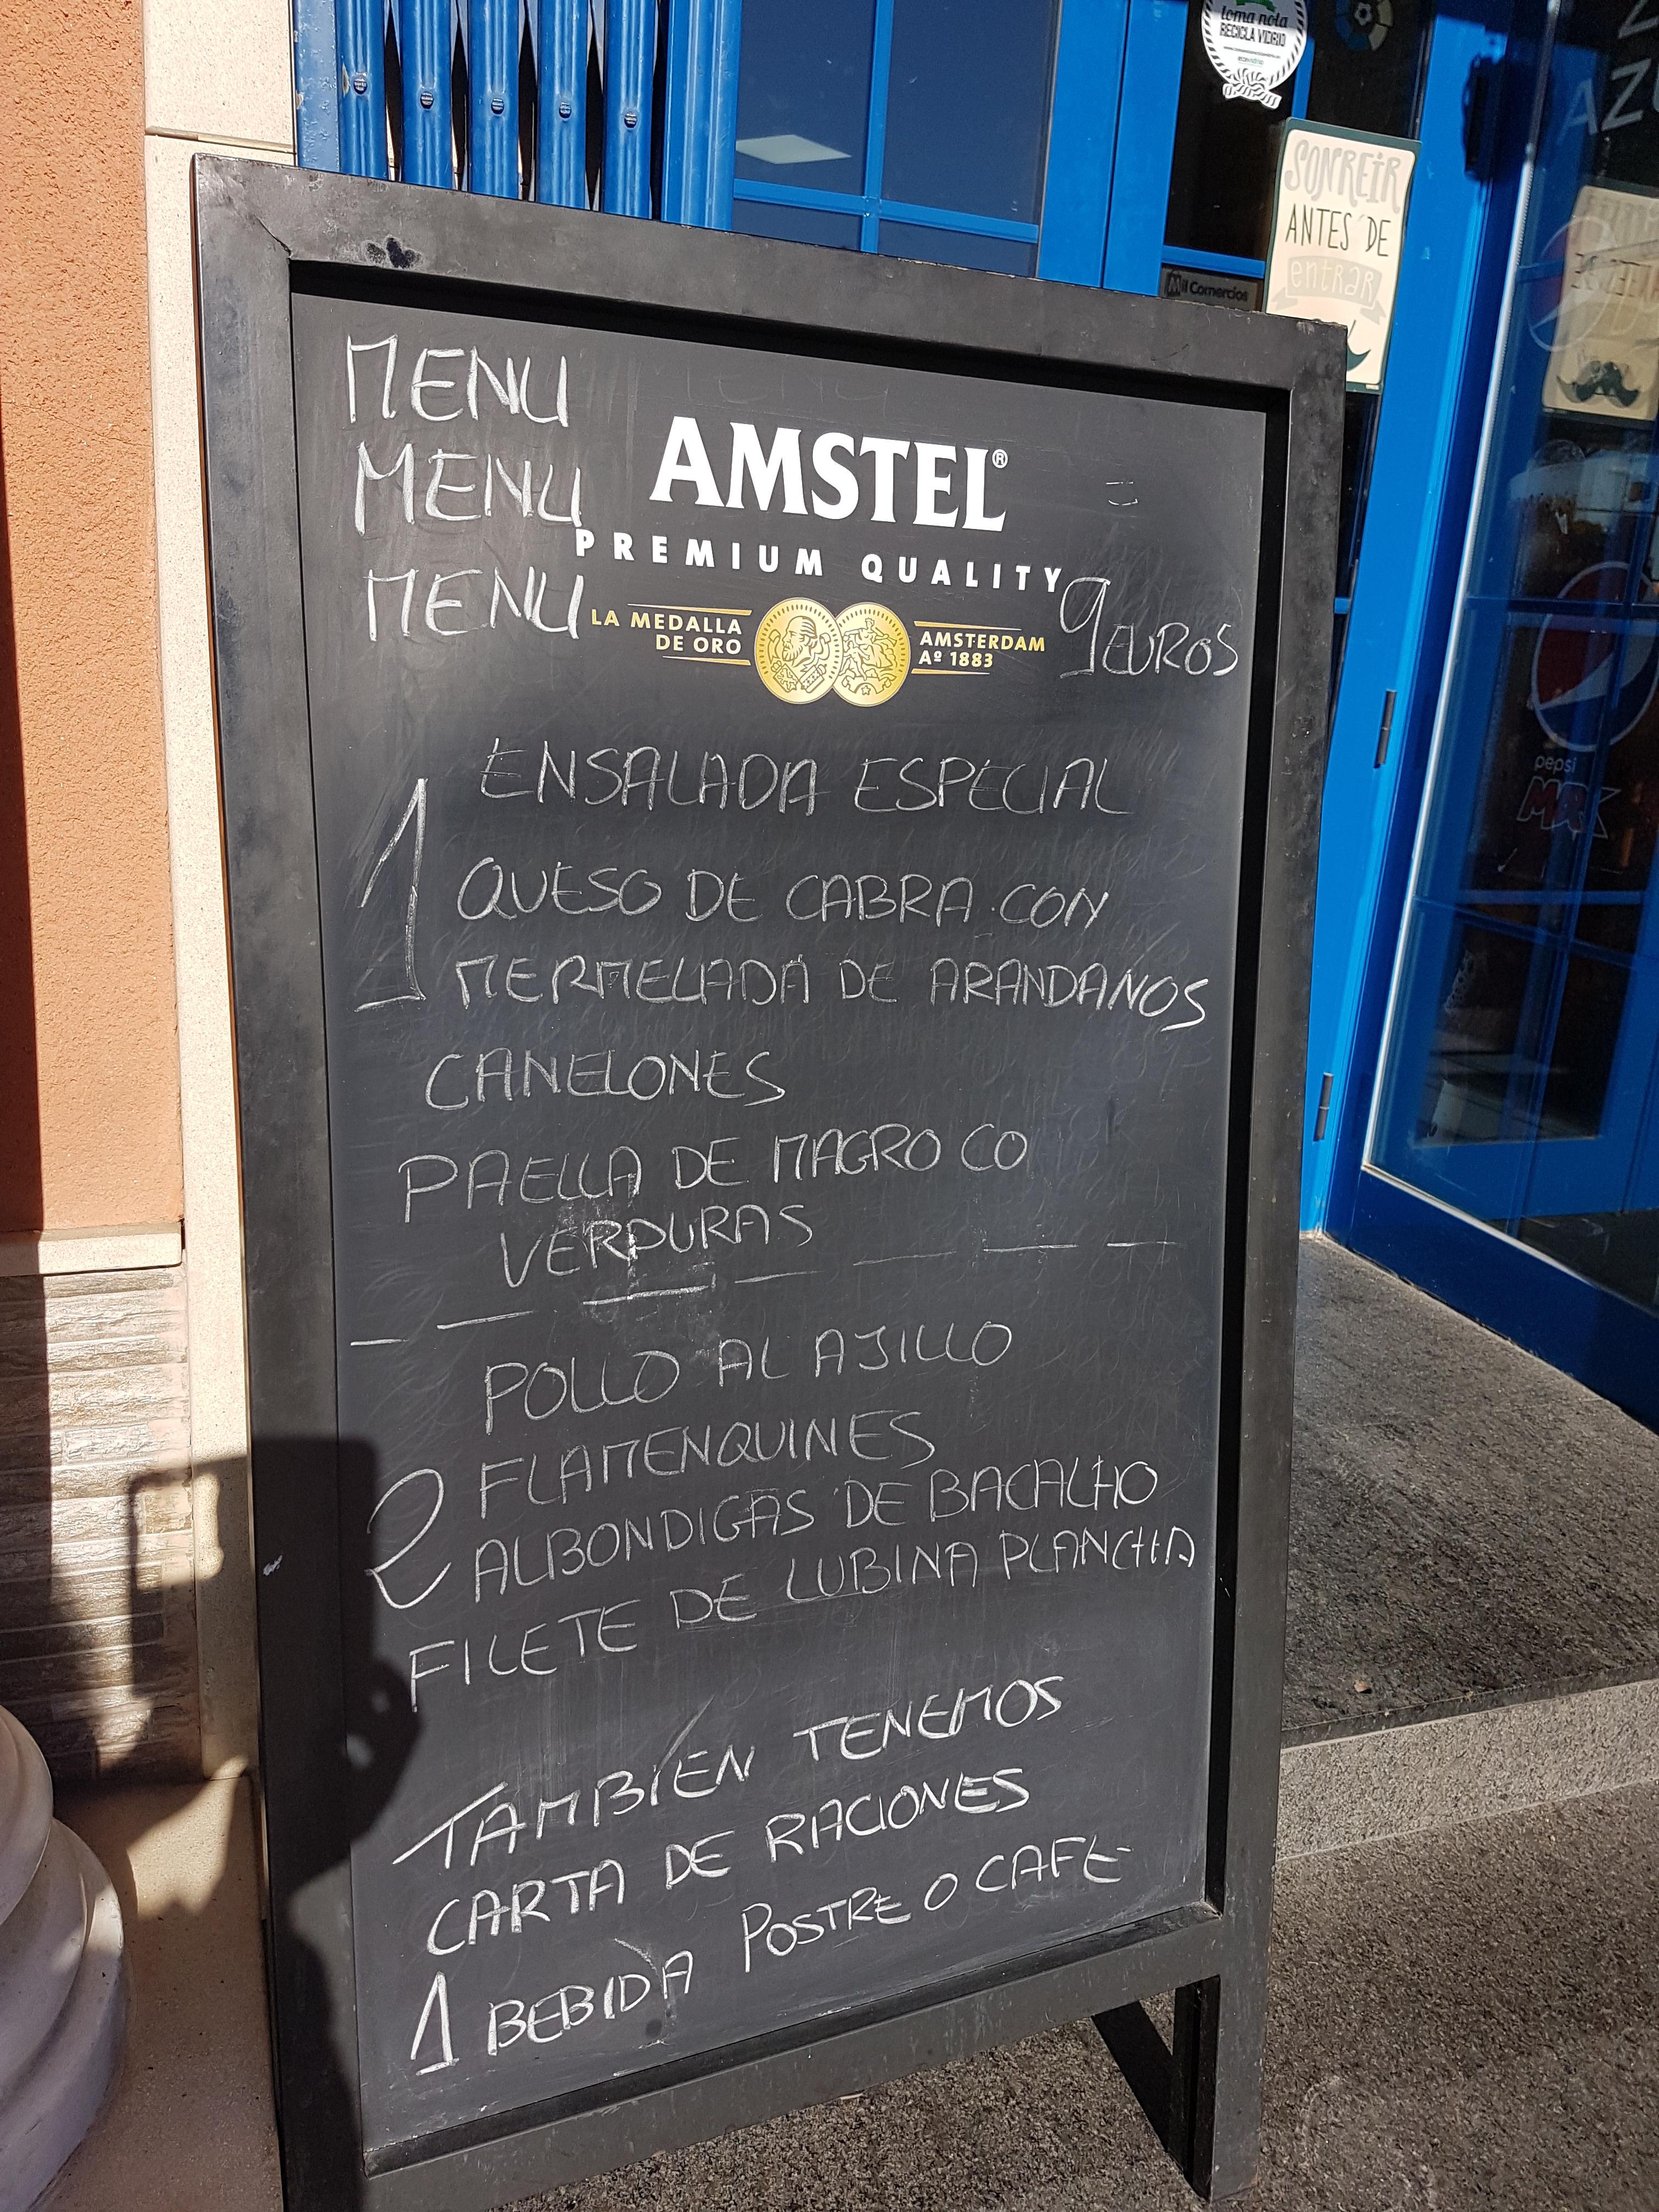 toma nota
RECICLA VIDRIO
SONREIR
ANTES DE
entrar
Mil Comercios
AZ
MENU
MENU
MENU
AMSTEL®
PREMIUM QUALITY
LA MEDALLA
DE ORO
AMSTERDAM
Aº 1883
9 EUROS
pepsi
MAX
1
ENSALADA ESPECIAL
QUESO DE CABRA CON
MERMELADA DE ARANDANOS
CANELONES
PAELLA DE MAGRO CO
VERDURAS
2
POLLO AL AJILLO
FLAMENQUINES
ALBONDIGAS DE BACALHO
FILETE DE LUBINA PLANCHA
TAMBIEN TENEMOS
CARTA DE RACIONES
1 BEBIDA POSTRE O CAFE